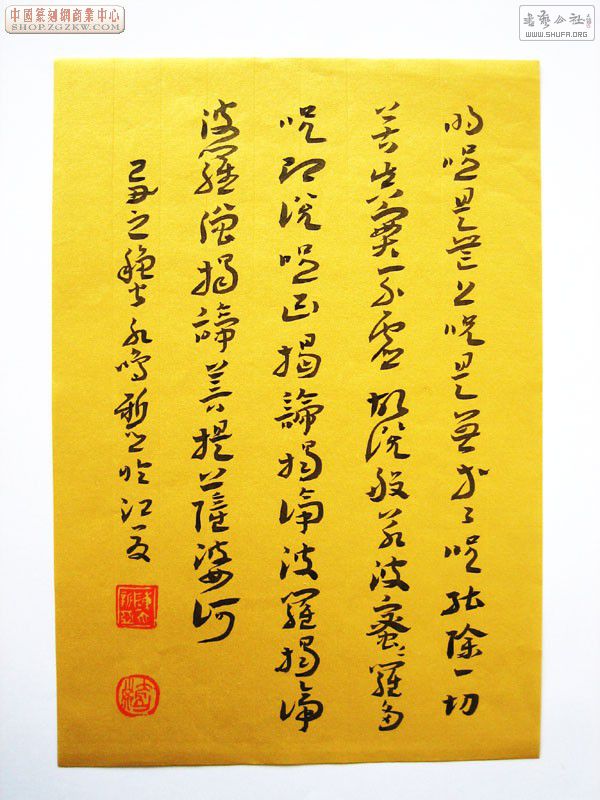 中國篆刻網商業中心
SHOP.ZGZKW.COM
書藝公社
WWW.SHUFA.ORG
明呪是無上呪是無等々呪能除一切
苦真實不虛故說般若波蜜羅多
呪即說呪曰揭諦揭諦波羅揭諦
波羅僧揭諦菩提薩婆訶
己丑之穐永鳴江夏